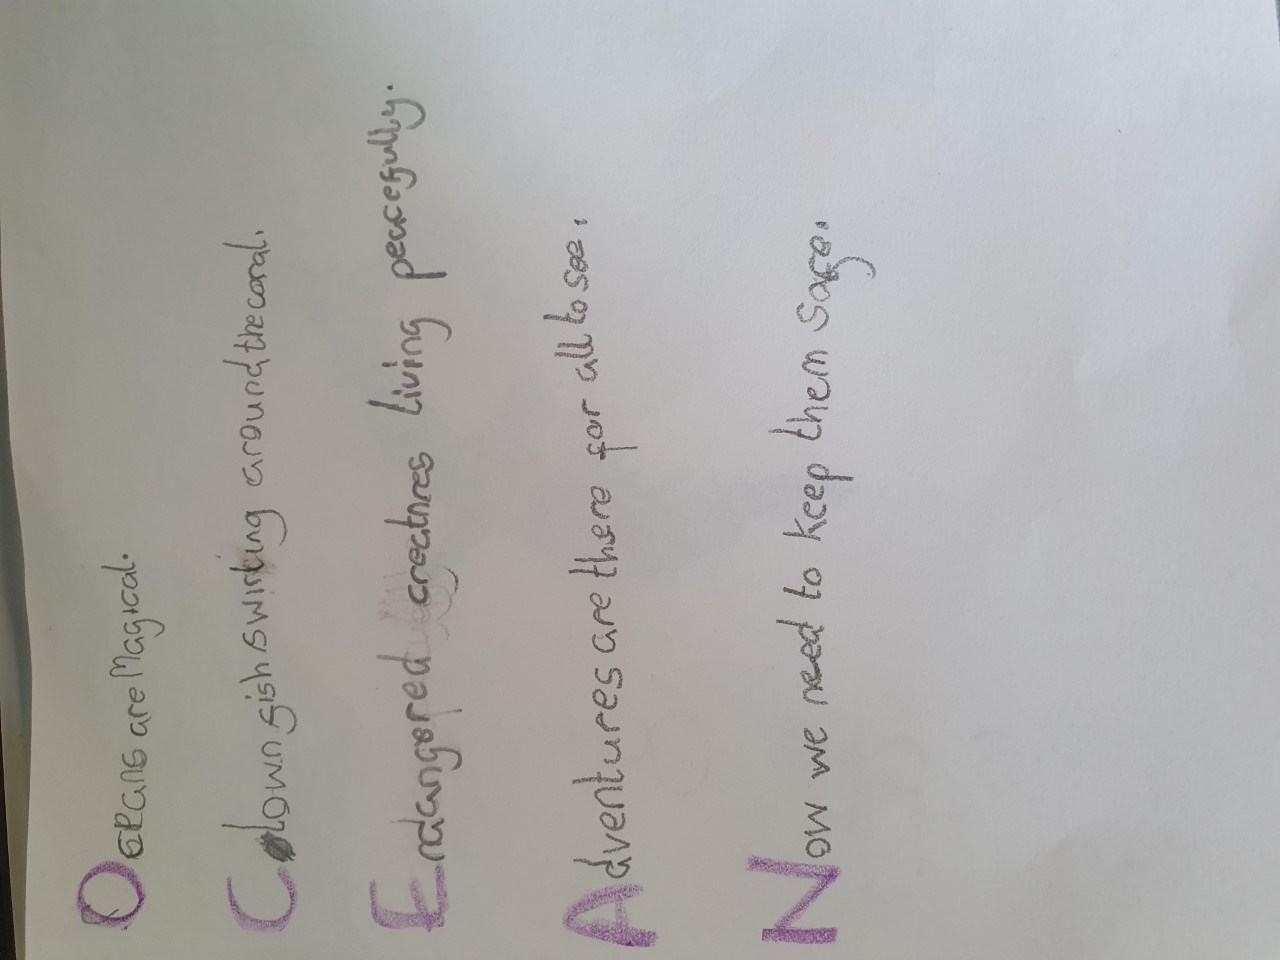 Oceans are Magical.
Clown fish swirling around the coral.
Endangered creatures living peacefully.
Adventures are there for all to see.
Now we need to keep them safe.